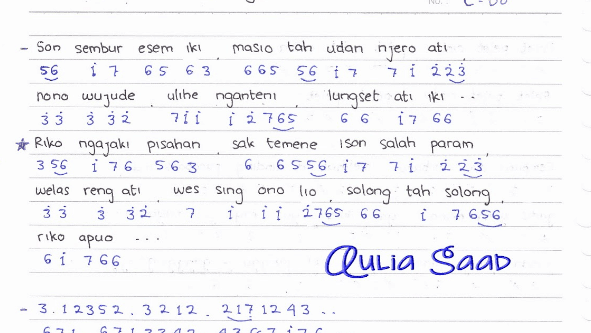 - Son sembur esem iki, masio tah udan njero ati
56 i 7 65 63 665 56 i 7 7 i 223
nono wujude, ulihe nganteni, lungset ati iki ..
33 332 7ii i2765 66 i7 66
★ Riko ngajaki pisahan, sak temene ison salah param,
356 i76 563 6 6556 i7 7i 223
welas reng ati, wes sing ono lio, solong tah solong,
33 3 32 7 i ii 2765 66 i 7656
riko apuo ...
6i 766
Qulia Saad
- 3.12352.3212.2171243..